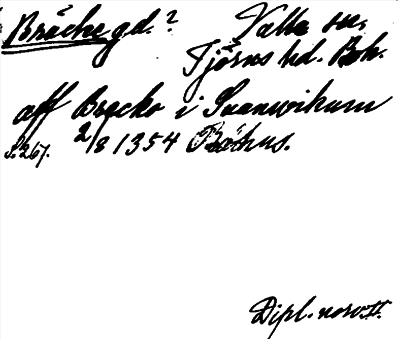 Bräcke gd.? Valla sn,
Tjörns hd. Boh.
aff Brecko i Suanwikum
s. 267. 2/8 1354 Båhus.
Dipl. norv. II.